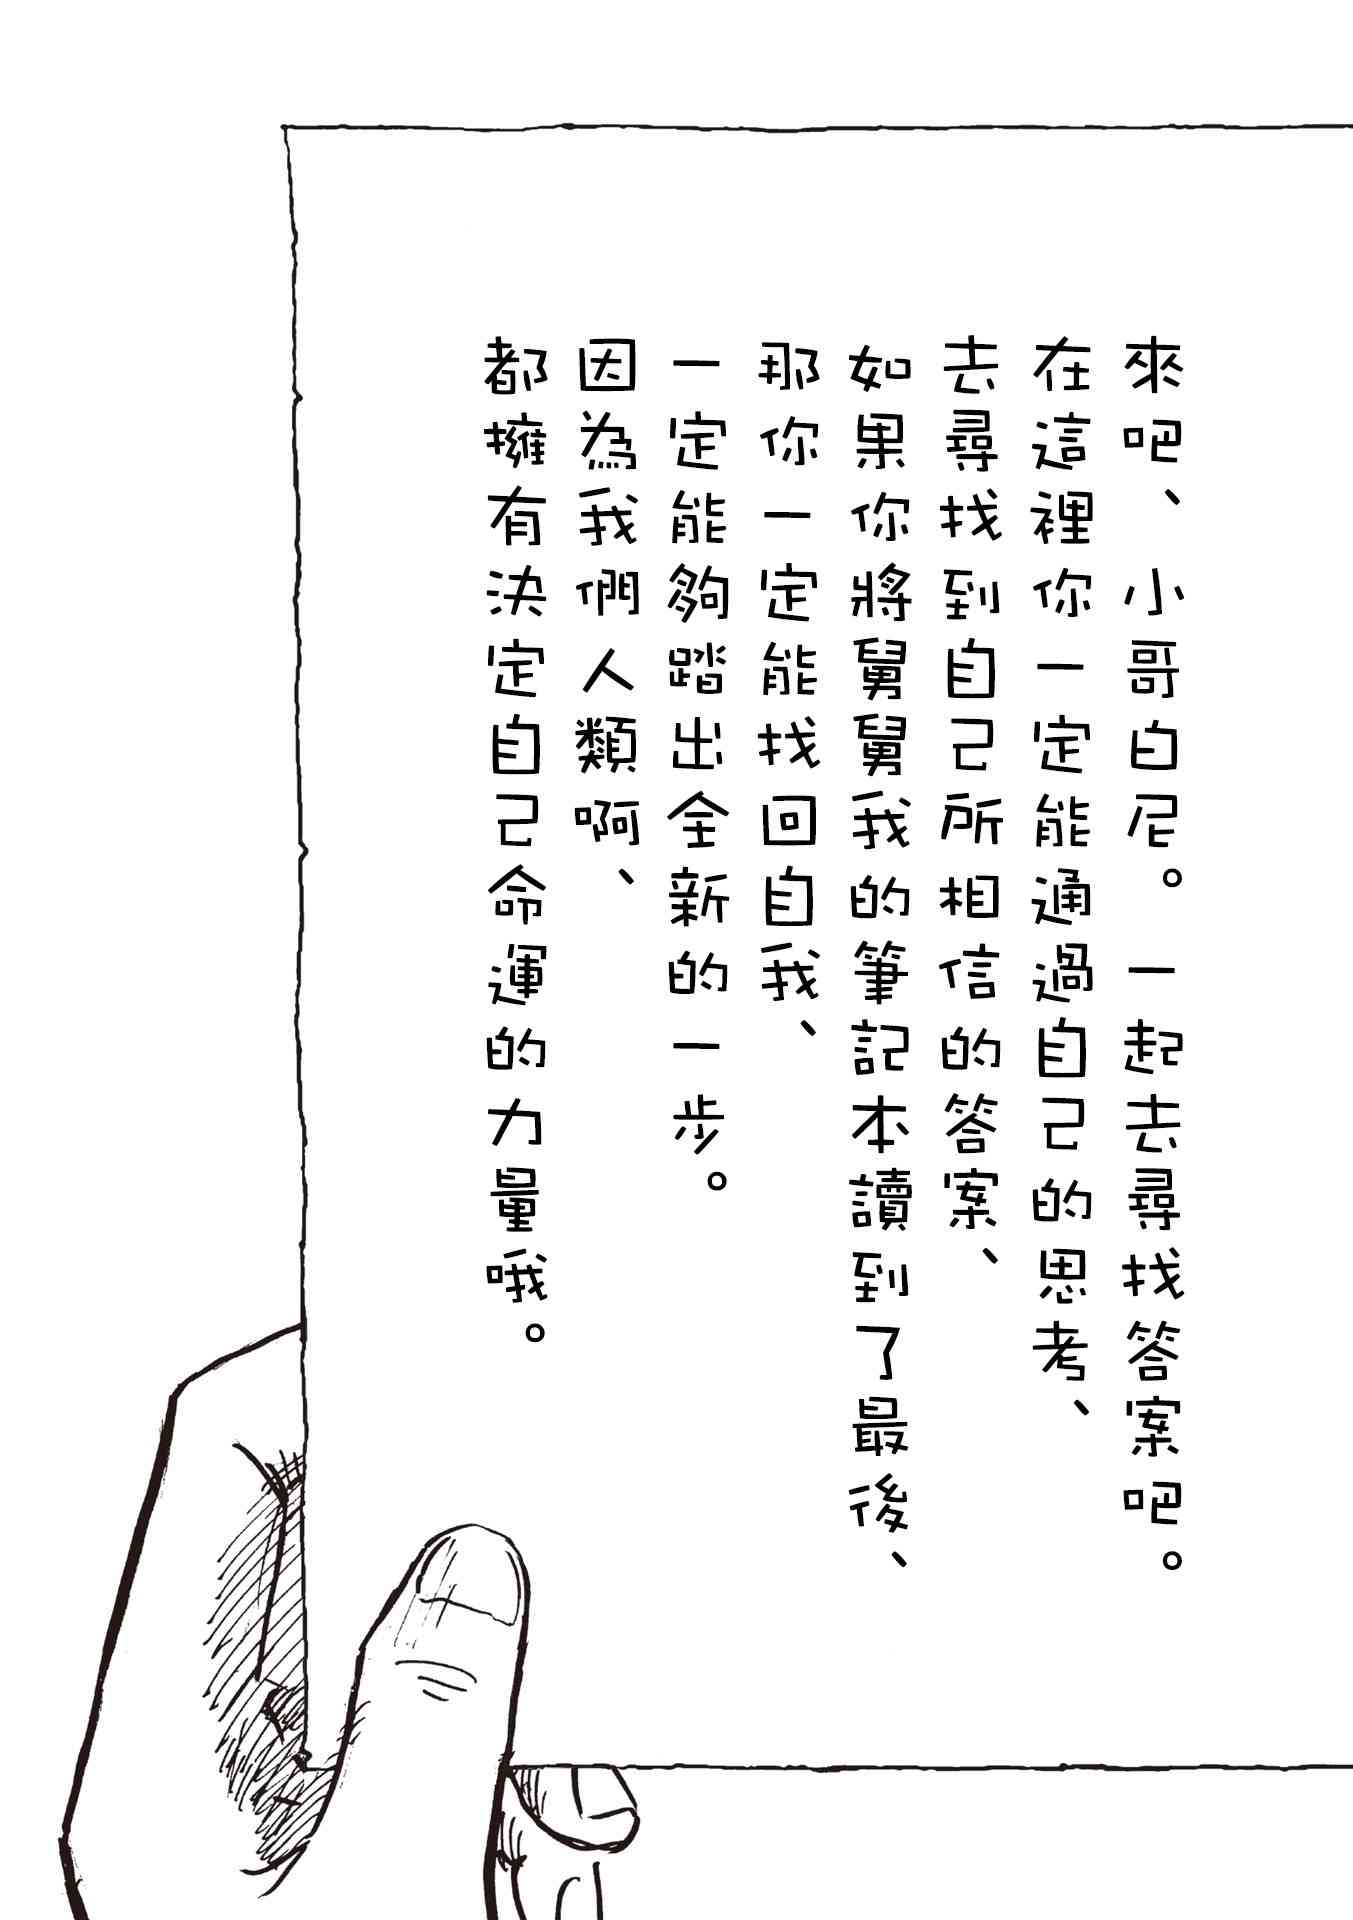 來吧、小哥白尼。一起去尋找答案吧。
在這裡你一定能通過自己的思考、
去尋找到自己所相信的答案、
如果你將舅舅我的筆記本讀到了最後、
那你一定能找回自我、
一定能夠踏出全新的一步。
因為我們人類啊、
都擁有決定自己命運的力量哦。